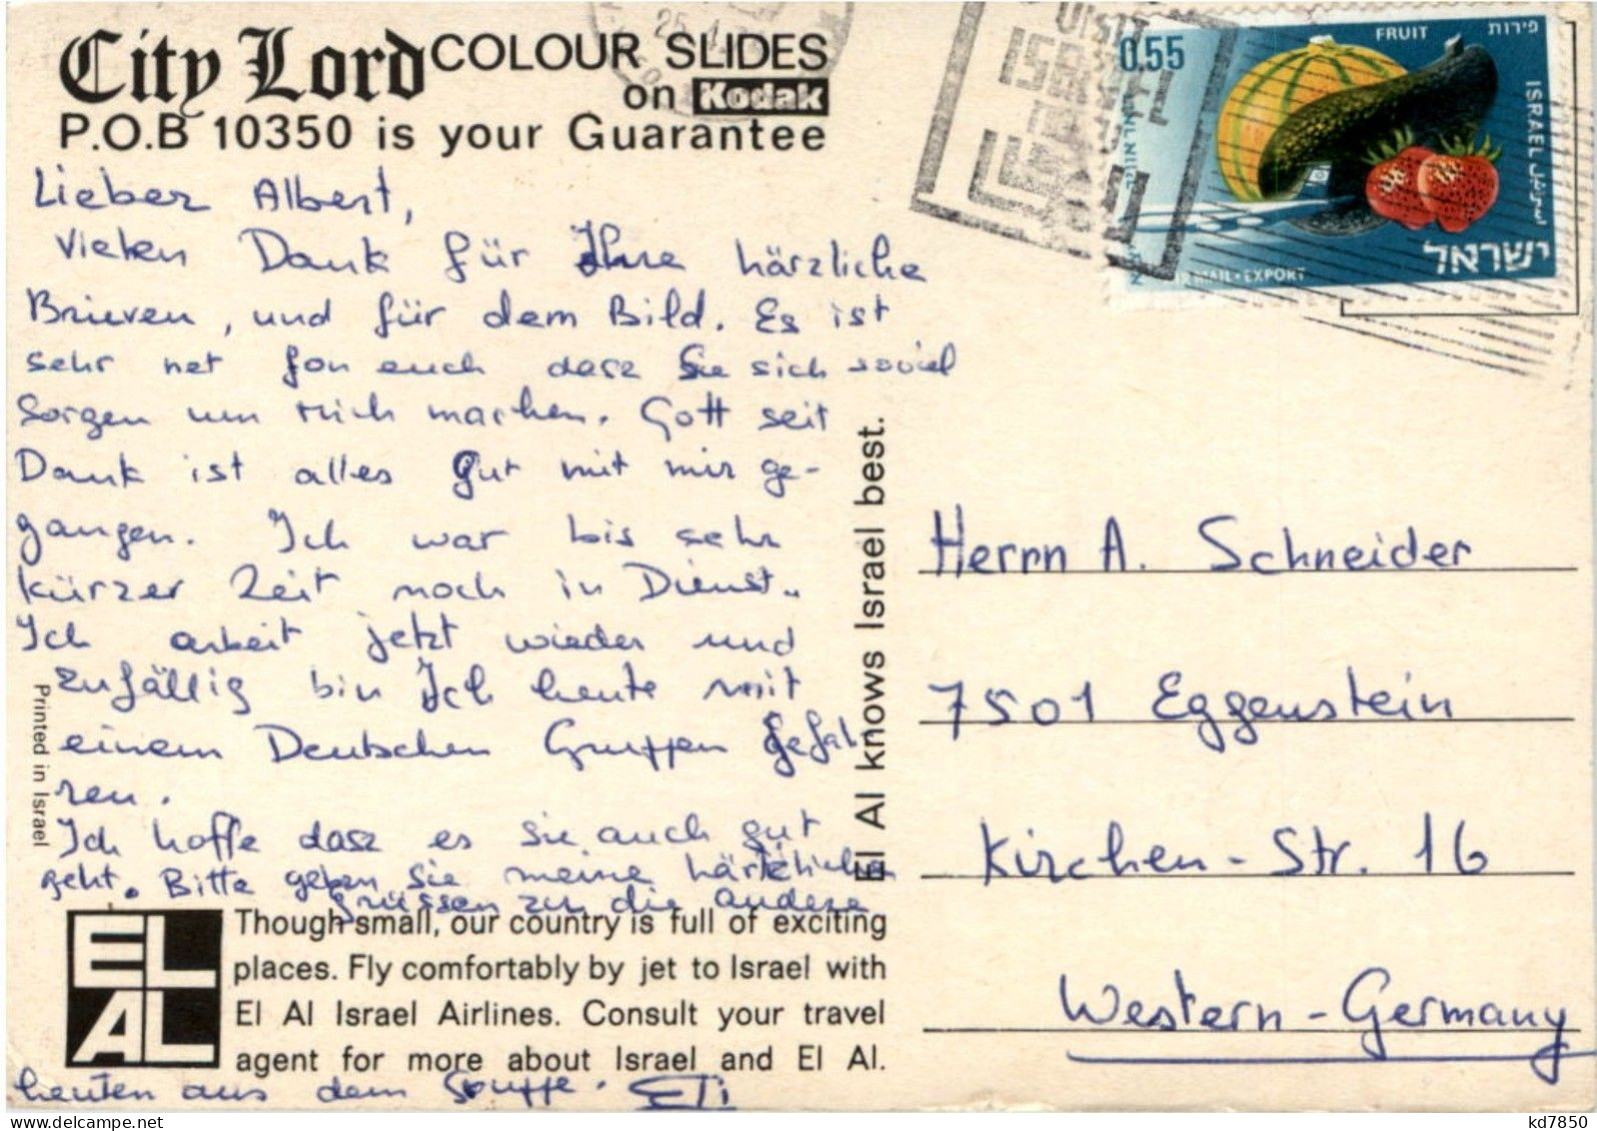 City Lord COLOUR SLIDES
on Kodak
P.O.B 10350 is your Guarantee
Lieber Albert,
Vielen Dank für Ihre härzliche
Brieven, und für dem Bild. Es ist
sehr net fon euch dasz Sie sich soviel
Sorgen um mich machen. Gott seit
Dank ist alles gut mit mir ge-
gangen. Ich war bis sehr
kürzer Zeit noch in Dienst..
Ich arbeit jetzt wieder und
zufällig bin Ich heute mit
einem Deutschen Gruppen gefah-
ren.
Ich hoffe dasz es sie auch gut
geht. Bitte geben sie meine
grüssen zu die andere
heuten aus dem Gruppe. Eti
Printed in Israel
EL
AL
Though small, our country is full of exciting
places. Fly comfortably by jet to Israel with
El Al Israel Airlines. Consult your travel
agent for more about Israel and El Al.
El Al knows Israel best.
25
VISIT
ISRAEL
0.55
FRUIT
פירות
ISRAEL اسرائيل
ישראל
AIR MAIL • EXPORT
Herrn A. Schneider
7501 Eggenstein
Kirchen-Str. 16
Western-Germany
kd7850